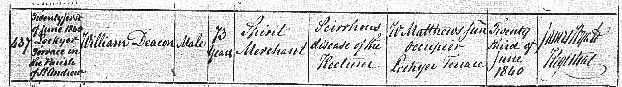 437
Twenty first
of June 1840
Lockyer
Terrace in
the Parish
of St Andrew
William Deacon
Male
73
Years
Spirit
Merchant
Scirrhous
disease of the
Rectum
W Matthews Jun
occupier
Lockyer Terrace
Twenty
third of
June
1840
James
Registrar